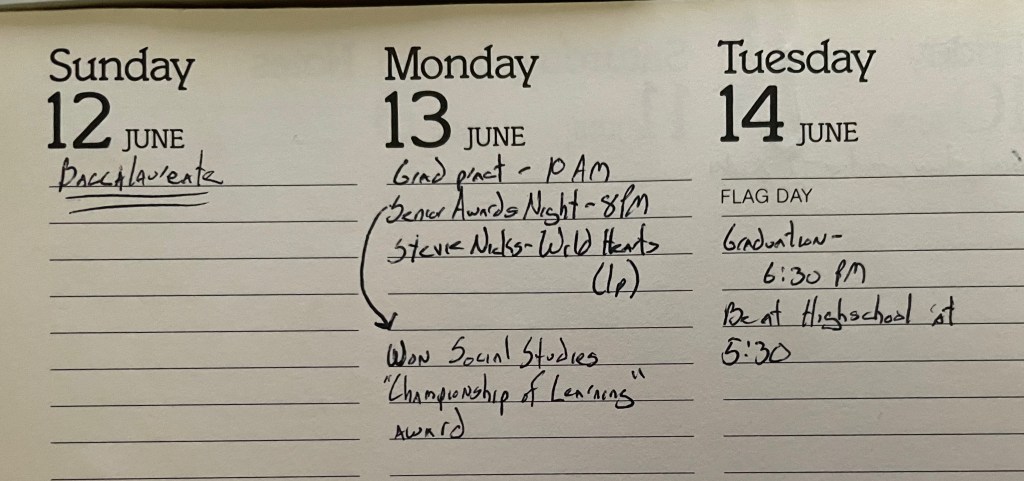 Sunday
12 JUNE
Baccalaureate
Monday
13 JUNE
Grad pract - 10 AM
Senior Awards Night - 8PM
Stevie Nicks - Wild Hearts
(lp)
Won Social Studies
"Championship of Learning"
Award
Tuesday
14 JUNE
FLAG DAY
Graduation -
6:30 PM
Be at Highschool at
5:30